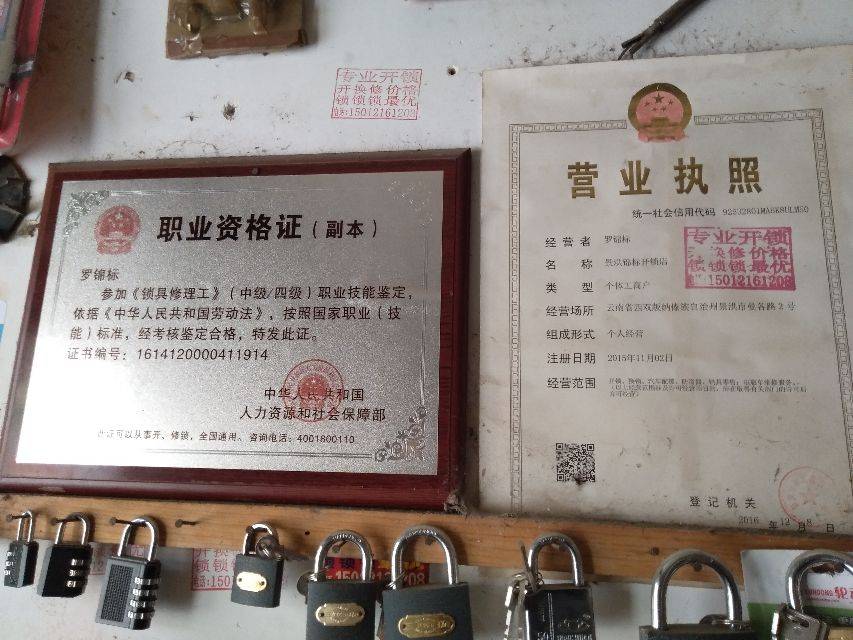 专业开锁
开换修价格
锁锁锁最优
电话:15012161208
职业资格证（副本）
罗锦标
参加《锁具修理工》（中级/四级）职业技能鉴定，
依据《中华人民共和国劳动法》，按照国家职业（技
能）标准，经考核鉴定合格，特发此证。
证书编号：1614120000411914
中华人民共和国
人力资源和社会保障部
此证可以从事开、修锁，全国通用。咨询电话：4001800110
营业执照
统一社会信用代码
经营者 罗锦标
名称 景洪锦标开锁店
类型 个体工商户
经营场所 云南省西双版纳傣族自治州景洪市曼各路2号
组成形式 个人经营
注册日期 2015年11月02日
经营范围
专业开锁
换修价格
锁锁锁最优
15012161208
登记机关
2016 年 12 月 8 日